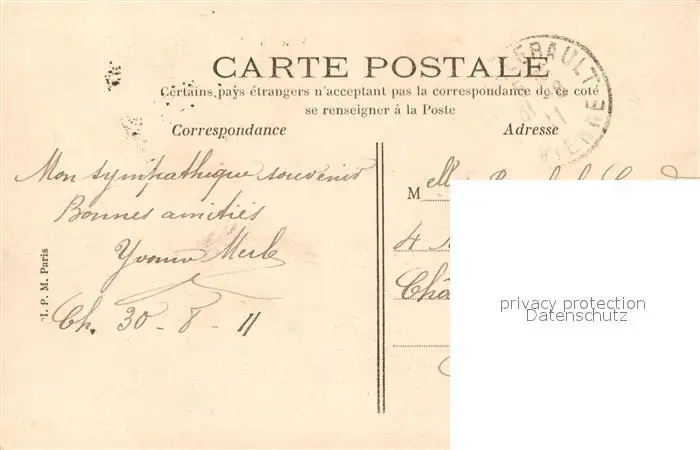 CARTE POSTALE
Certains pays étrangers n'acceptant pas la correspondance de ce coté
se renseigner à la Poste
Correspondance
Adresse
Mon sympathique souvenir
Bonnes amitiés
Yvonne Merle
Ch. 30-8-11
I. P. M. Paris
M elle
4
Châ
privacy protection
Datenschutz